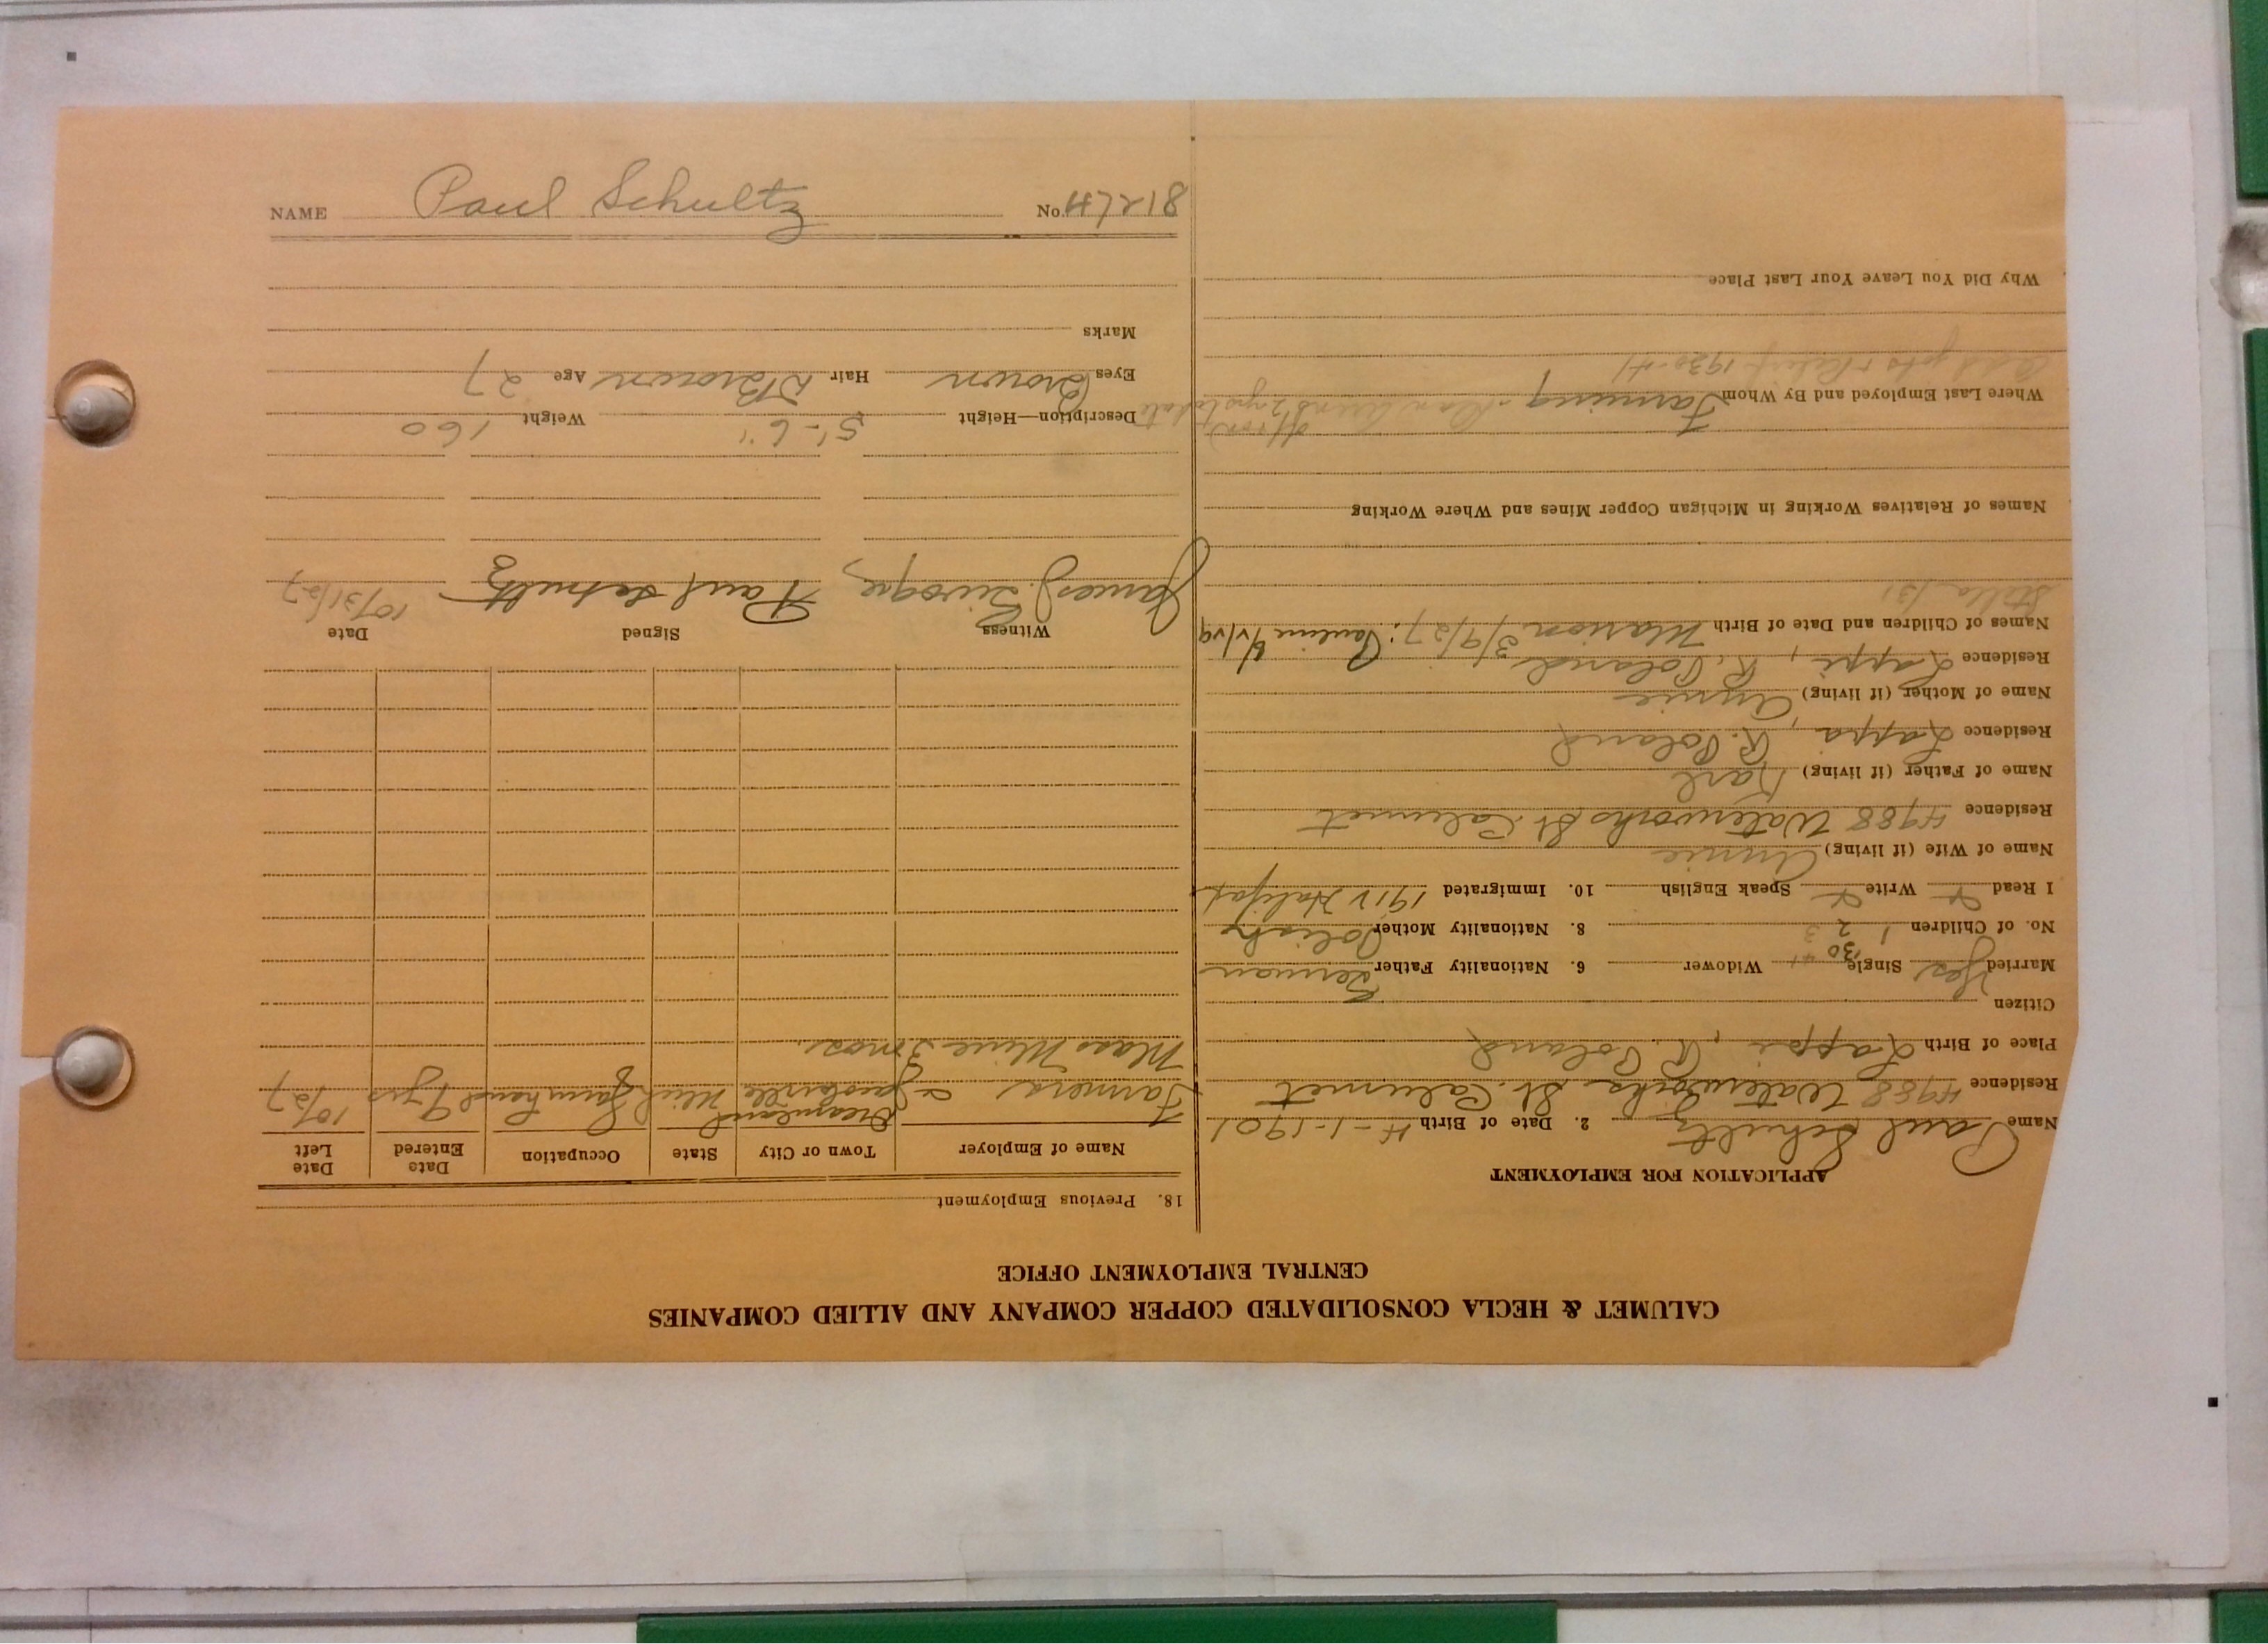 CALUMET & HECLA CONSOLIDATED COPPER COMPANY AND ALLIED COMPANIES
CENTRAL EMPLOYMENT OFFICE
APPLICATION FOR EMPLOYMENT
Name Paul Schultz 2. Date of Birth 4-1-1901
Residence 4988 Waterworks St. Calumet
Place of Birth Lappi, R. Poland
Citizen
Married Yes Single Widower 6. Nationality Father German
30 41
No. of Children 1 2 3 8. Nationality Mother Polish
I Read Write Speak English 10. Immigrated 1912 Halifax
Name of Wife (if living) Annie
Residence 4988 Waterworks St. Calumet
Name of Father (if living) Karl
Residence Lappi, R. Poland
Name of Mother (if living) Annie
Residence Lappi, R. Poland
Names of Children and Date of Birth Marion 3/9/27; Pauline
Stella /31
Names of Relatives Working in Michigan Copper Mines and Where Working
Where Last Employed and By Whom Farming
1930-41
Why Did You Leave Your Last Place
18. Previous Employment
Name of Employer Town or City State Occupation Date Entered Date Left
Dreamland
Farmers Jacobsville Mich Farm hand 9 yrs 10/27
Mass Mine 3 mos.
Witness Signed Date
James J. Paul Schultz 10/31/27
Description—Height 5'-6" Weight 160
Eyes Brown Hair D Brown Age 27
Marks
NAME Paul Schultz No. 47218